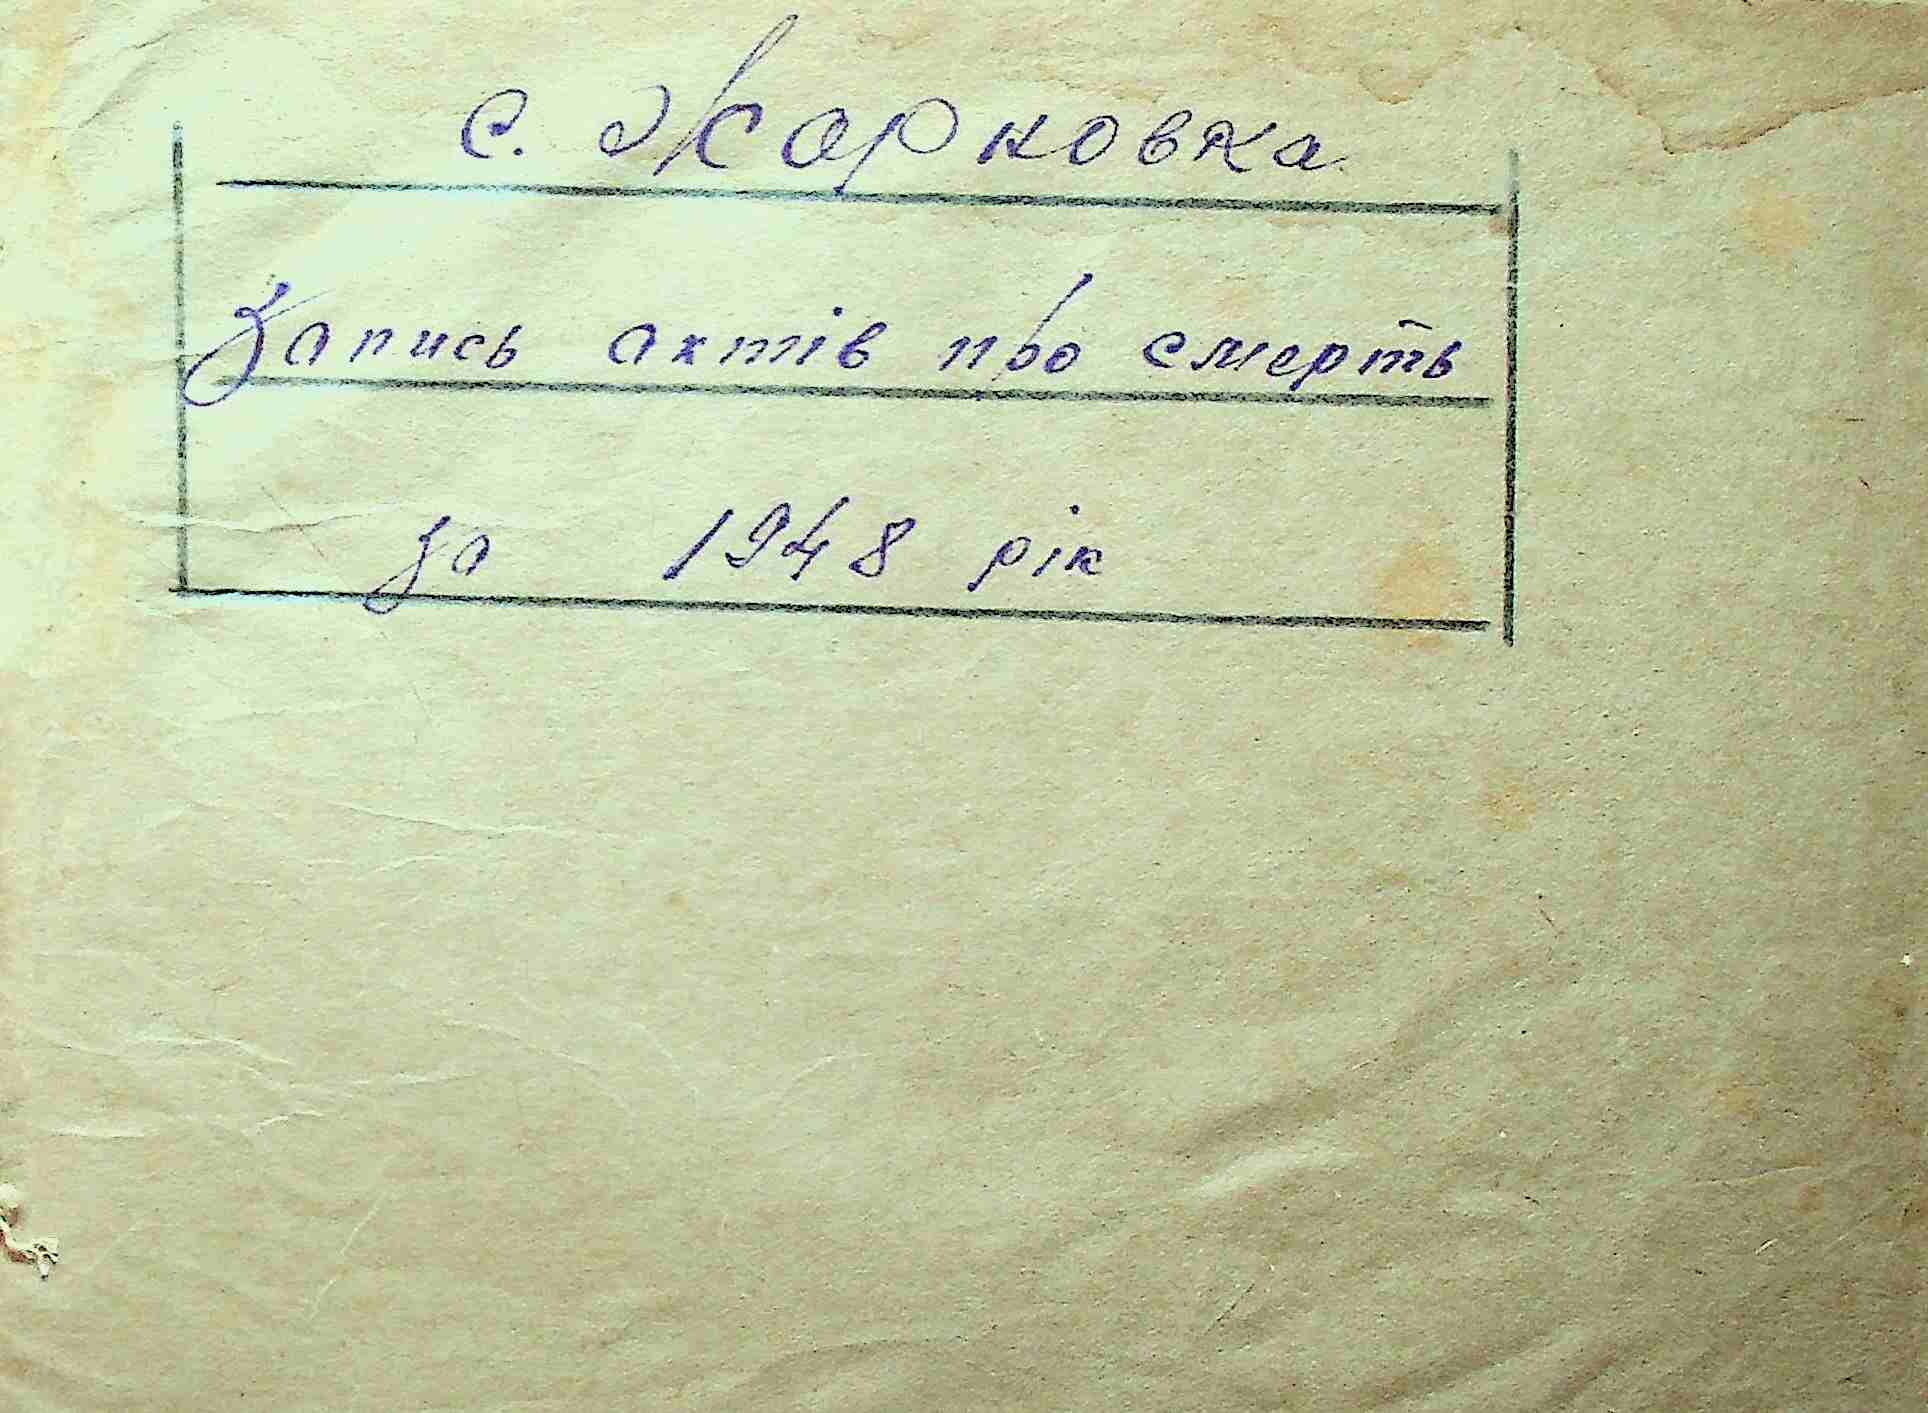 с. Жарновка
Запись актів про смерть
за 1948 рік